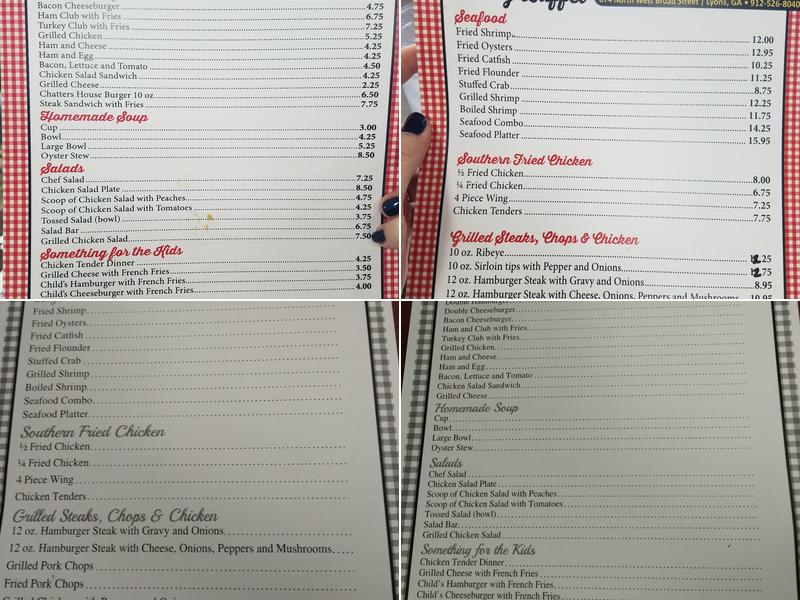 Bacon Cheeseburger 4.75
Ham Club with Fries 6.75
Turkey Club with Fries 7.25
Grilled Chicken 5.25
Ham and Cheese 4.25
Ham and Egg 4.25
Bacon, Lettuce and Tomato 4.50
Chicken Salad Sandwich 4.25
Grilled Cheese 2.25
Chatters House Burger 10 oz. 6.50
Steak Sandwich with Fries 7.75
Homemade Soup
Cup 3.00
Bowl 4.25
Large Bowl 5.25
Oyster Stew 8.50
Salads
Chef Salad 7.25
Chicken Salad Plate 8.50
Scoop of Chicken Salad with Peaches 4.75
Scoop of Chicken Salad with Tomatoes 4.25
Tossed Salad (bowl) 3.75
Salad Bar 6.75
Grilled Chicken Salad 7.50
Something for the Kids
Chicken Tender Dinner 4.25
Grilled Cheese with French Fries 3.50
Child's Hamburger with French Fries 3.75
Child's Cheeseburger with French Fries 4.00
North West Broad Street | Lyons, GA • 912-526-8040
Seafood
Fried Shrimp 12.00
Fried Oysters 12.95
Fried Catfish 10.25
Fried Flounder 11.25
Stuffed Crab 8.75
Grilled Shrimp 12.25
Boiled Shrimp 11.75
Seafood Combo 14.25
Seafood Platter 15.95
Southern Fried Chicken
½ Fried Chicken 8.00
¼ Fried Chicken 6.75
4 Piece Wing 7.25
Chicken Tenders 7.75
Grilled Steaks, Chops & Chicken
10 oz. Ribeye
10 oz. Sirloin tips with Pepper and Onions
12 oz. Hamburger Steak with Gravy and Onions 8.95
12 oz. Hamburger Steak with Cheese, Onions, Peppers and Mushrooms 10.95
Fried Shrimp
Fried Oysters
Fried Catfish
Fried Flounder
Stuffed Crab
Grilled Shrimp
Boiled Shrimp
Seafood Combo
Seafood Platter
Southern Fried Chicken
½ Fried Chicken
¼ Fried Chicken
4 Piece Wing
Chicken Tenders
Grilled Steaks, Chops & Chicken
12 oz. Hamburger Steak with Gravy and Onions
12 oz. Hamburger Steak with Cheese, Onions, Peppers and Mushrooms
Grilled Pork Chops
Fried Pork Chops
Double Hamburger
Double Cheeseburger
Bacon Cheeseburger
Ham and Club with Fries
Turkey Club with Fries
Grilled Chicken
Ham and Cheese
Ham and Egg
Bacon, Lettuce and Tomato
Chicken Salad Sandwich
Grilled Cheese
Homemade Soup
Cup
Bowl
Large Bowl
Oyster Stew
Salads
Chef Salad
Chicken Salad Plate
Scoop of Chicken Salad with Peaches
Scoop of Chicken Salad with Tomatoes
Tossed Salad (bowl)
Salad Bar
Grilled Chicken Salad
Something for the Kids
Chicken Tender Dinner
Grilled Cheese with French Fries
Child's Hamburger with French Fries
Child's Cheeseburger with French Fries